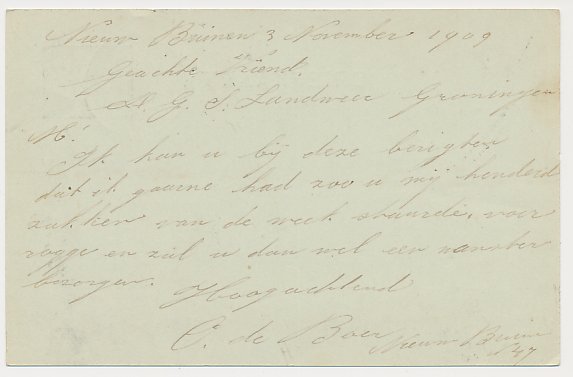 Nieuw Buinen 3 November 1909
Geachte Vriend.
H. G. J. Landweer Groningen
M!
Ik kan u bij deze berigten
dat ik gaarne had zoo u mij honderd
zakken van de week stuurde, voor
rogge en zal u dan wel een monster
bezorgen. Hoogachtend
C. de Boer Nieuw Buinen
N 47